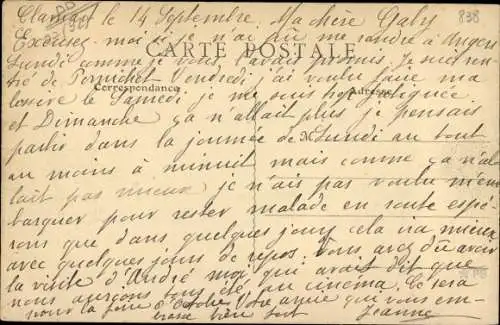 Clamart le 14 Septembre. Ma chère Gaby 838
Excusez-moi si je n'ai pu me rendre à Angers
CARTE POSTALE
Lundi comme je vous l'avais promis. Je suis ren-
trée de Pornichet Vendredi j'ai voulu faire ma
Correspondance Adresse
le Samedi je me suis fatiguée
et Dimanche ça n'allait plus je pensais
partir dans la journée de Lundi au tout
au moins à minuit mais comme ça n'al
lait pas mieux je n'ais pas voulu m'em
barquer pour rester malade en route espé-
rons que dans quelques jours cela ira mieux
avec quelques jours de repos. Vous avez dû avoir
la visite d'André moi, qui avait dit que
nous aurions tous été au cinéma. Ce sera
pour la foire d'Octobre Votre amie que vous em-
brasse bien fort Jeanne